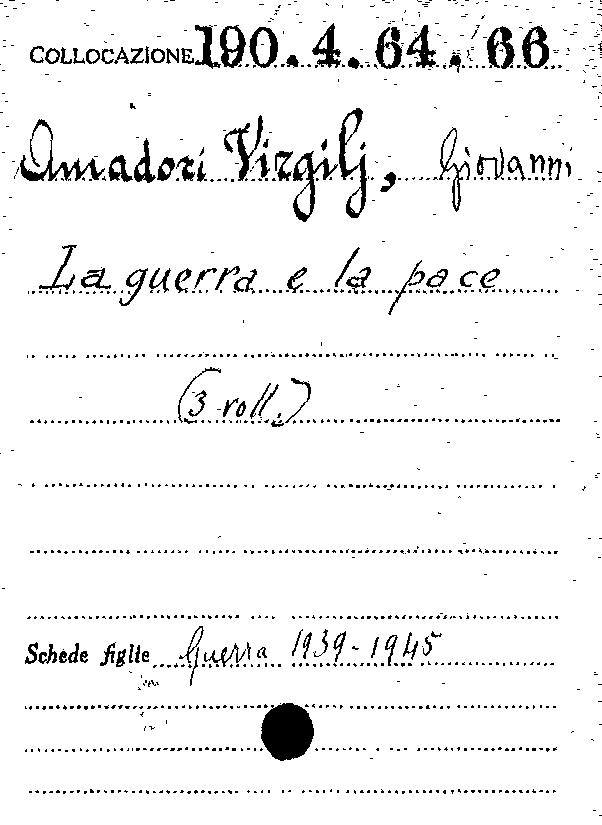 COLLOCAZIONE 190.4.64.66
Amadori Virgilj, Giovanni
La guerra e la pace
(3 voll.)
Schede figlie Guerra 1939-1945